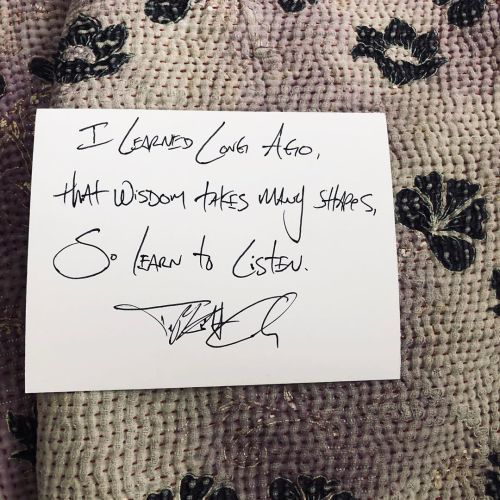 I LEARNED LONG AGO,
THAT WISDOM TAKES MANY SHAPES,
SO LEARN TO LISTEN.